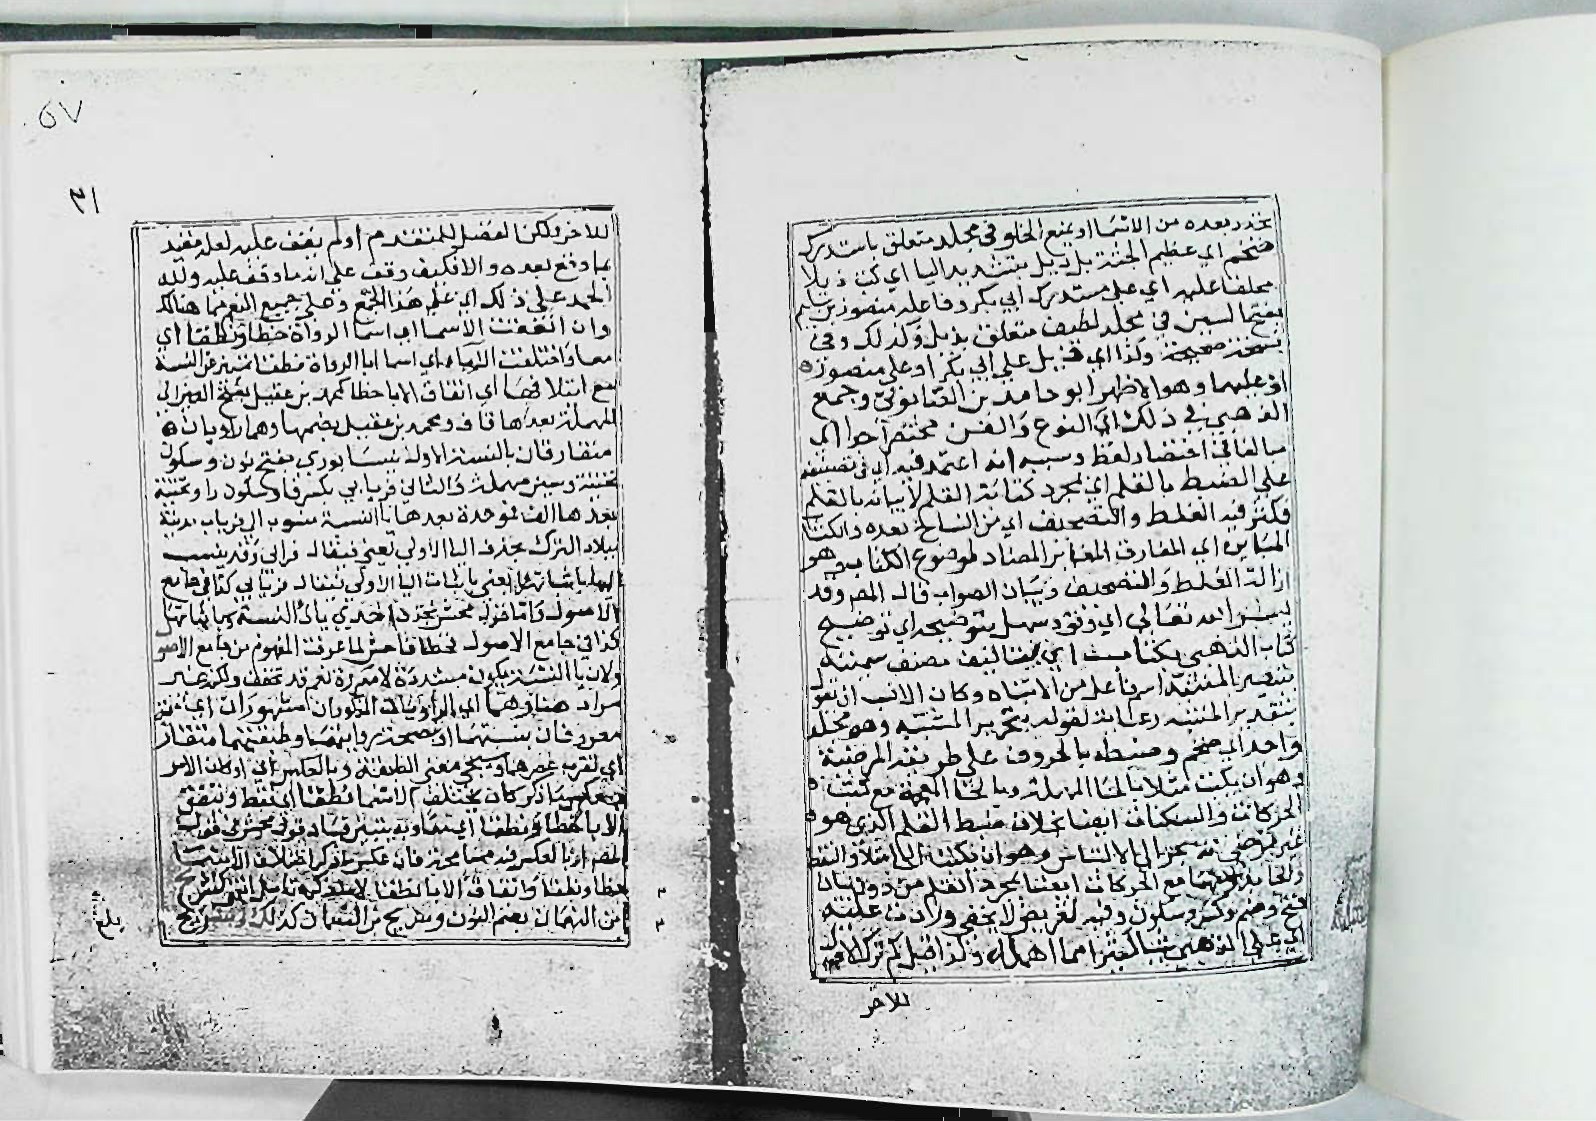 يتجدد بعده من الاسما او يمنع الخلو في مجلد متعلق باستدرك
ضخم اي عظيم الجثة بل ذيل بتشديد اليا اي كتب ذيلا
مجلفا عليه اي على مستدرك ابي بكر وفا عله منصور بن سليم
بفتح السين في مجلد لطيف متعلق بذيل وكذلك وفي
نسخة صحيحة وكذا اي ذيل على ابي بكر او على منصور
او عليهما وهو الاظهر ابو حامد بن الصابوني وجمع
الذهبي في ذلك اي النوع والفن مختصرا جدا اي
مبالغا في اختصار لفظه وسببه انه اعتمد فيه اي في تصنيفه
على الضبط بالقلم اي بمجرد كتابة القلم لا بيانه بالقلم
فكثر فيه الغلط والتصحيف اي من النساخ بعده والكتاب
المباين اي المفارق المغاير المضاد لموضوع الكتاب وهو
ازالة الغلط والتصحيف وبيان الصواب قال المص وقد
يسر الله تعالى اي وفق وسهل بتوضيحه اي توضيح
كتاب الذهبي بكتاب اي بتاليف مصنف سميته
تبصير المنتبه اسم فاعل من الانتباه وكان الانسب ان يقول
بتحرير المشتبه وهو مجلد
واحد اي ضخم وضبطه بالحروف على طريقة المرضية
وهو ان يكتب مثلا بالحا المهملة وبالخا المعجمة مع
الحركات والسكنات ايضا بخلاف ضبط القلم الذي هو
غير مرضي لانه ينجر الى الالتباس وهو ان يكتب
مع الحركات ايضا بمجرد القلم من دون بيان
فتح وضم وكسر وسكون وفيه تعريض لا يخفى وزادت عليه
اي على الذهبي شيا كثيرا مما اهمله وكذا قيل كم ترك الاول
للاخر
٥٧
٣١
للاخر ولكن الفضل للمتقدم او لم يقف عليه لعله مقيد
بما وقع بعده والا فكيف وقف على انه ما وقف عليه ولله
الحمد على ذلك اي على هذا الجمع وعلى جميع النعم مما هنالك
وان اتفقت الاسما اي اسما الرواة خطا ونطقا اي
معا واختلفت الابا اي اسما ابا الرواة نطقا تمييز عن النسبة
مع ائتلافها اي اتفاق الابا خطا كمحمد بن عقيل بفتح العين اي
المهملة بعدها قاف ومحمد بن عقيل بضمها وهما راويان
متقارقان بالنسبة الاول نيسابوري بفتح نون وسكون
تحتية وسين مهملة والثاني فريابي بكسر فا وسكون را وتحتية
بعدها الف فموحدة بعدها يا النسبة منسوب الى فرياب مدينة
ببلاد الترك بحذف اليا الاولى يعني فيقال فرابي وقد ينسب
اليها باثباتها يعني باثبات اليا الاولى فيقال فريابي كذا في جامع
الاصول واما قول محش بحذف احدي يائ النسبة وباثباتها
كذا في جامع الاصول فخطا فاحش لما عرفت المفهوم من جامع الاصول
ولان يا النسبة يكون مشددة لا مفردة نعم قد تخفف ولكن غير
مراد هنا وهما اي الراويان المذكوران مشهوران اي
معروفان بنسبتهما او بصحة روايتهما وطبقتهما متقاربة
اي لقرب عصرهما وسيجي معنى الطبقة وبالعكس اي او كان الامر
بعكس ما ذكر كان يختلف الاسما نطقا اي لفظا وتتفق
الابا خطا ونطقا اي معا وبه يتبين فساد قول محش في قول
المص ان بالعكس فيه مسامحة فان عكس ما ذكر اختلاف الاسما
خطا ونطقا واتفاق الابا نطقا لا تامل انتهى كشريح
بن النعمان بضم النون وسريج بن النعمان كذلك وشريح
بلغ